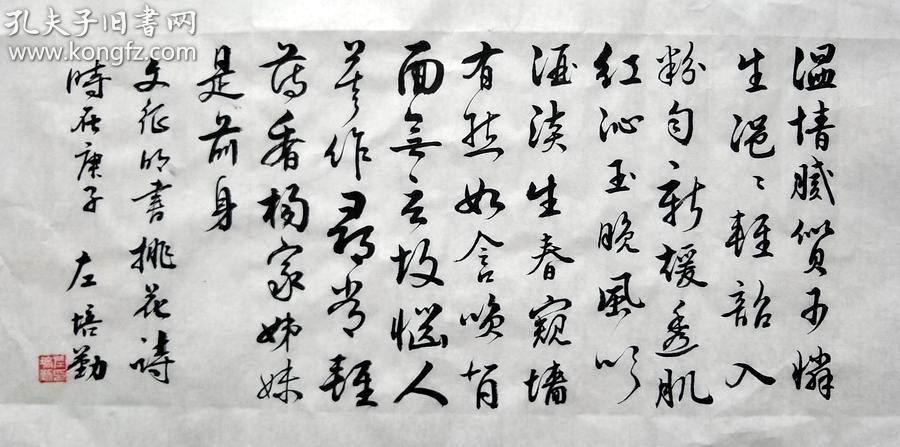 孔夫子旧书网
www.kongfz.com
溫情膩質可憐
生浥〻輕韶入
粉勻新煖透肌
紅沁玉晚風吹
酒淡生春窺墻
有態如含笑背
面無言故惱人
莫作尋常輕
薄看楊家姊妹
是前身
文徵明書桃花詩
時在庚子 左培勤